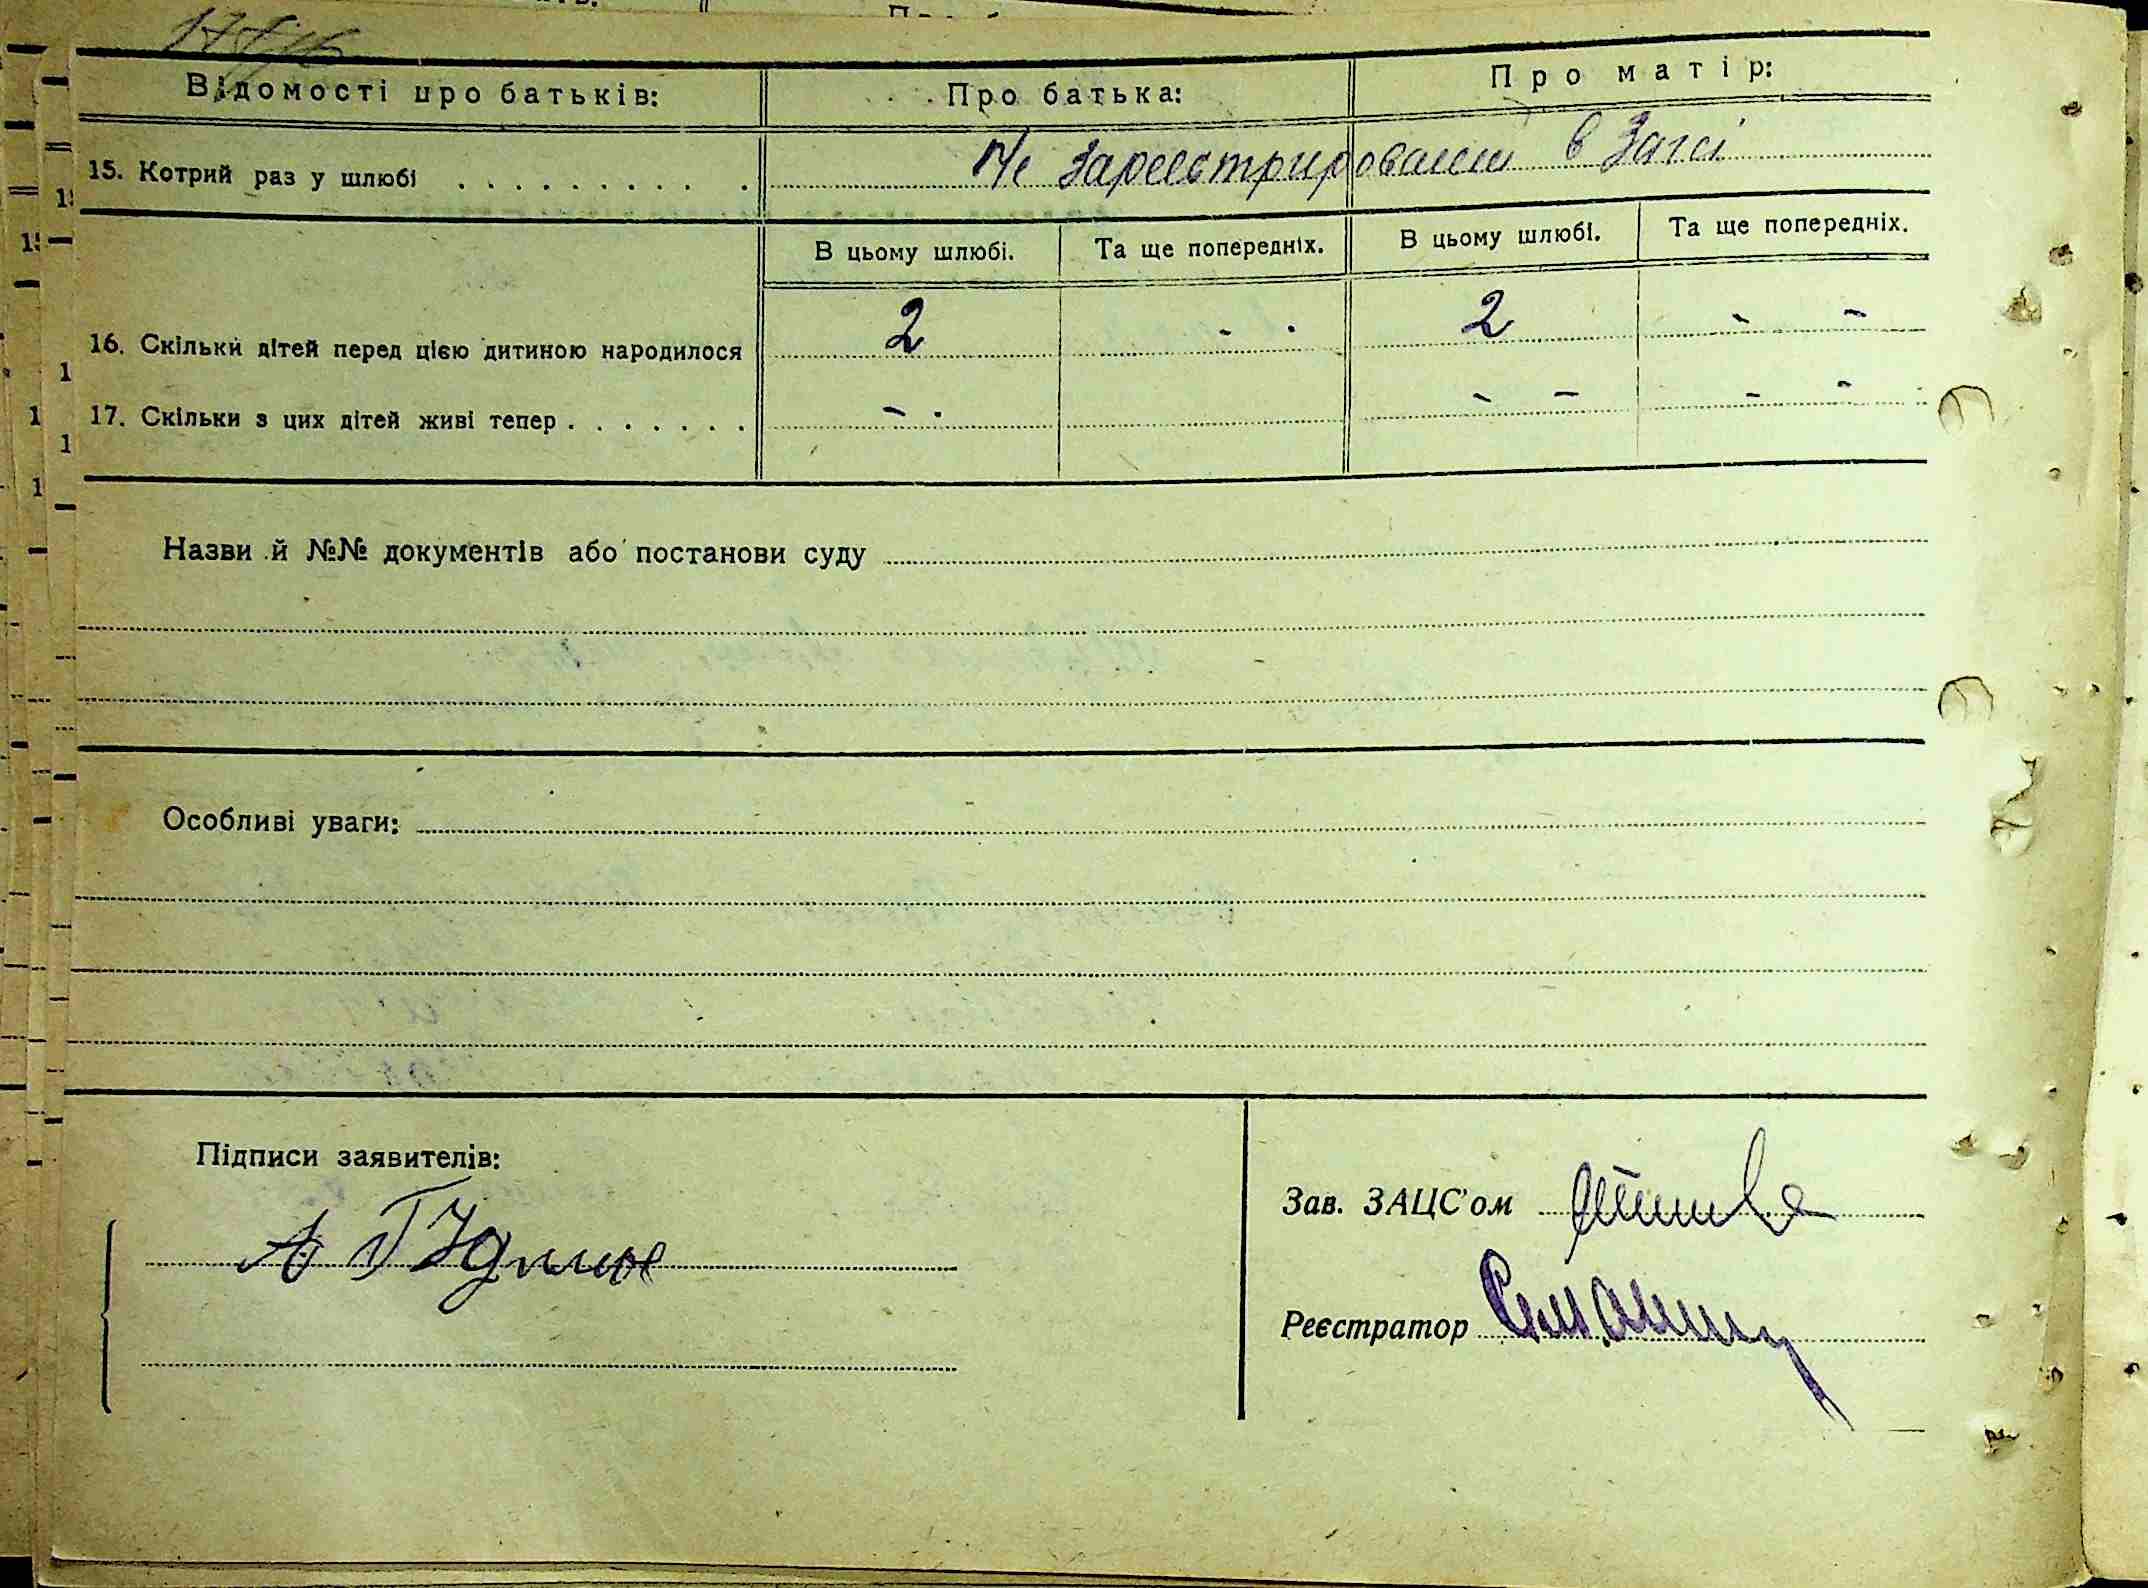 Відомості про батьків: Про батька: Про матір:
15. Котрий раз у шлюбі . . . . . . . . . . Не зареєстрировании в Загсі
В цьому шлюбі. Та ще попередніх. В цьому шлюбі. Та ще попередніх.
16. Скільки дітей перед цією дитиною народилося 2 - - 2 - -
17. Скільки з цих дітей живі тепер . . . . . . . - - - - - -
Назви й №№ документів або постанови суду
Особливі уваги:
Підписи заявителів:
Зав. ЗАЦС'ом
Реєстратор